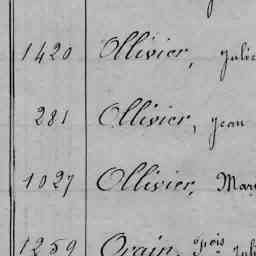 1420 Ollivier, Julie
281 Ollivier, Jean
1027 Ollivier, Mar
1259 Orain,